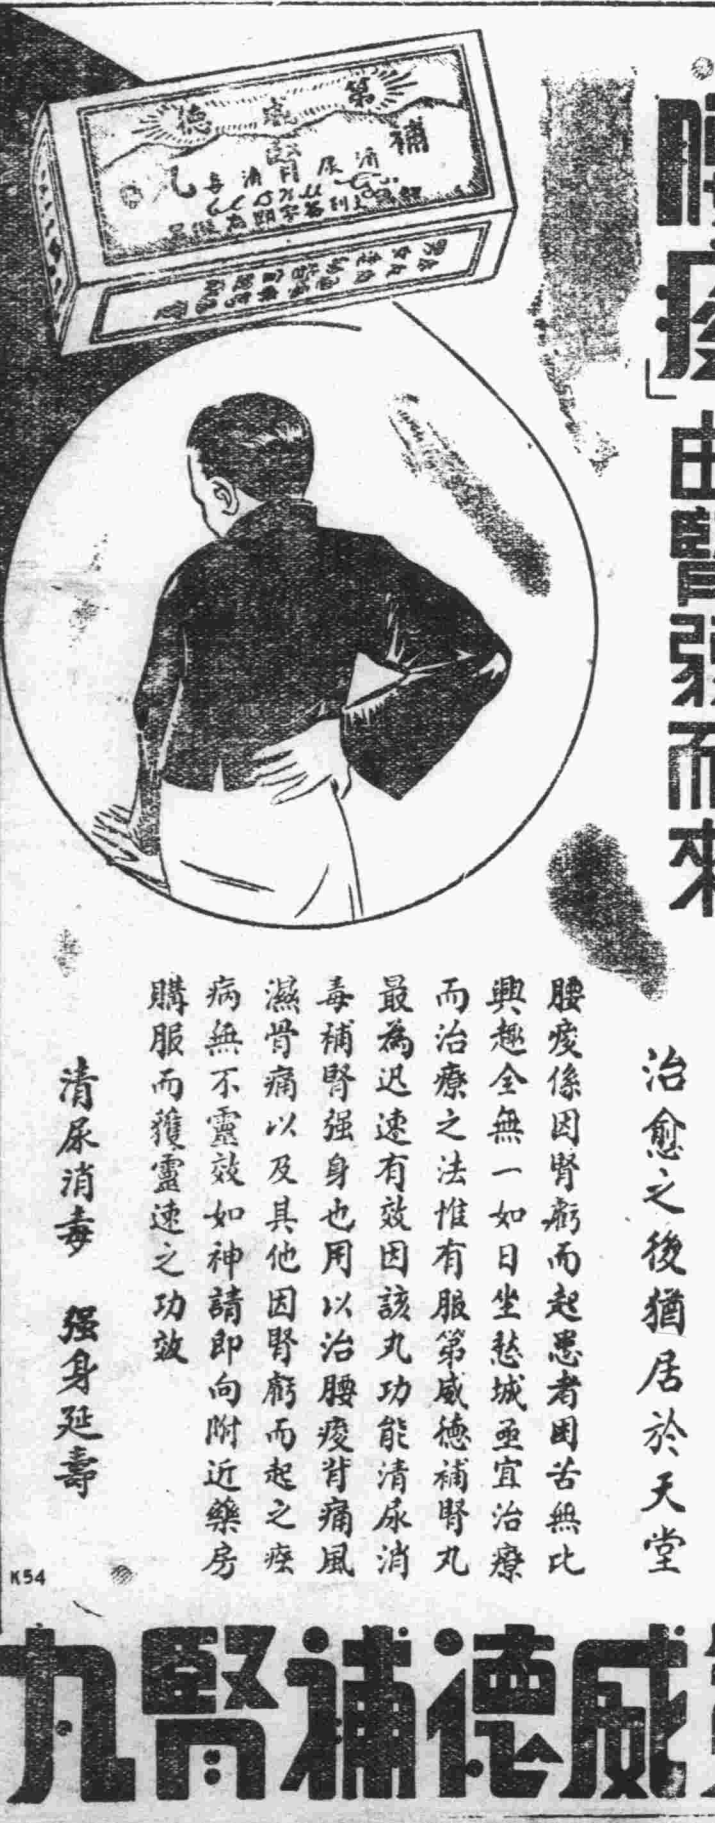 痠」由腎弱而來
治愈之後猶居於天堂
腰痠係因腎虧而起患者困苦無比
興趣全無一如日坐愁城亟宜治療
而治療之法惟有服第威德補腎丸
最為迅速有效因該丸功能清尿消
毒補腎强身也用以治腰痠背痛風
濕骨痛以及其他因腎虧而起之症
病無不靈效如神請即向附近藥房
購服而獲靈速之功效
清尿消毒 强身延壽
K54
威德補腎丸
第威德
補腎丸
清尿消毒